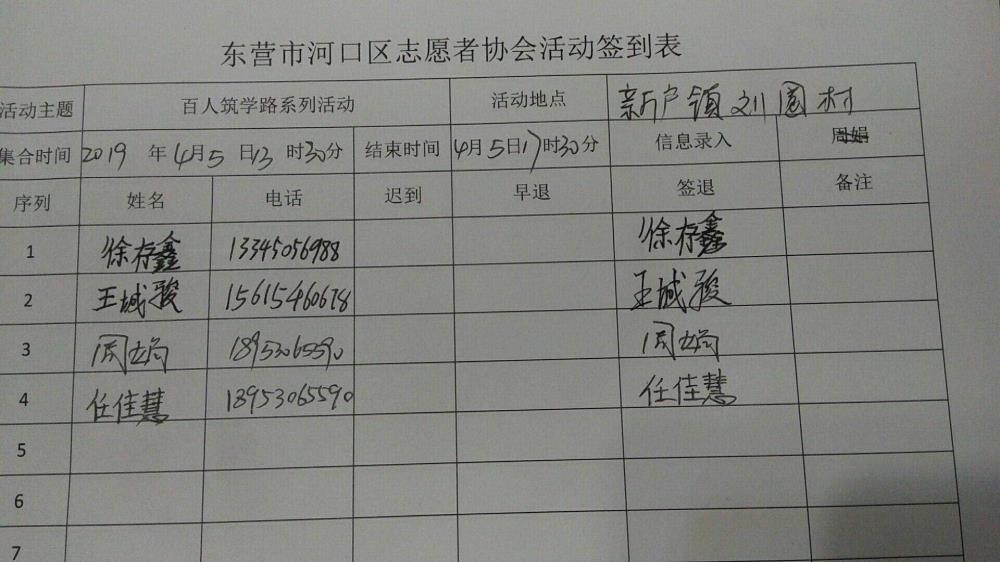 东营市河口区志愿者协会活动签到表
活动主题 百人筑学路系列活动 活动地点 新户镇刘圈村
集合时间 2019 年 4月5 日13 时30分 结束时间 4月5日17时30分 信息录入 周娟
序列 姓名 电话 迟到 早退 签退 备注
1 徐存鑫 13345056988 徐存鑫
2 王城骏 15615460678 王城骏
3 周娟 18953065590 周娟
4 任佳慧 18953065590 任佳慧
5
6
7